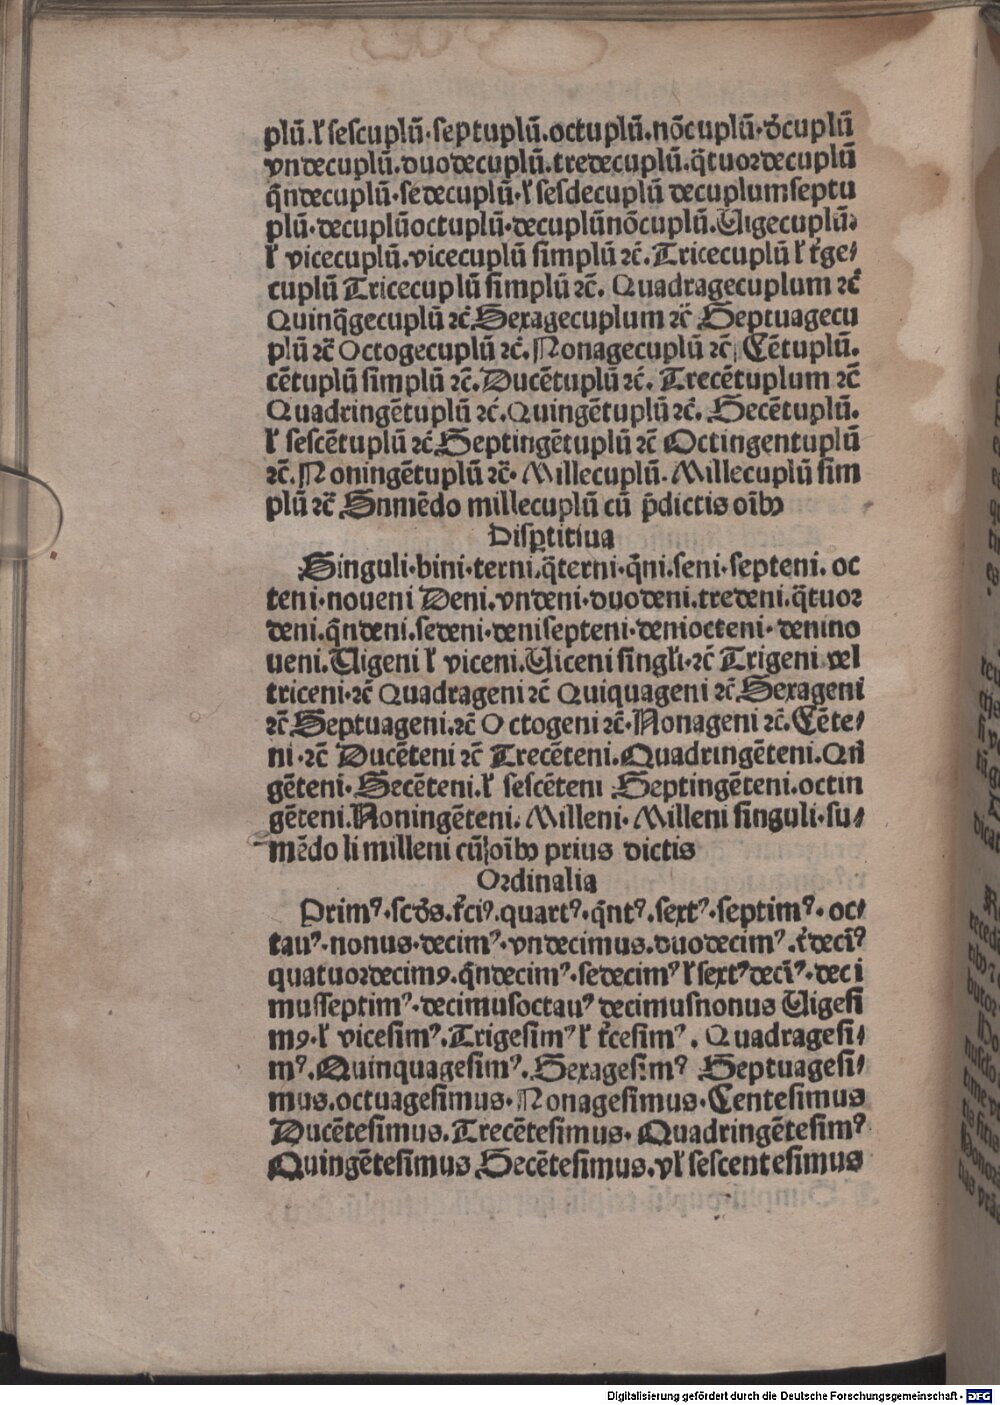 plū.ł sescuplū·septuplū.octuplū.nōcuplū·dēcuplū
vndecuplū.duodecuplū.tredecuplū.q̄tuordecuplū
q̄ndecuplū·sedecuplū·ł sesdecuplū decuplumseptu
plū·decuplūoctuplū·decuplūnōcuplū.Uigecuplū.
ł vicecuplū.vicecuplū simplū ⁊c̄.Tricecuplū ł t͛ge⸗
cuplū Tricecuplū simplū ⁊c̄. Quadragecuplum ⁊c̄
Quinq̄gecuplū ⁊c̄ Sexagecuplum ⁊c̄ Septuagecu
plū ⁊c̄ Octogecuplū ⁊c̄.Nonagecuplū ⁊c̄ Cētuplū.
cētuplū simplū ⁊c̄.Ducētuplū ⁊c̄. Trecētuplum ⁊c̄
Quadringētuplū ⁊c̄.Quingētuplū ⁊c̄. Secētuplū.
ł sescētuplū ⁊c̄ Septingētuplū ⁊c̄ Octingentuplū
⁊c̄.Noningētuplū ⁊c̄· Millecuplū. Millecuplū sim
plū ⁊c̄ Snmēdo millecuplū cū p̄dictis oībꝫ
Disꝑtitiua
Singuli·bini·terni.q̄terni·q̄ni.seni·septeni. oc
teni·noueni Deni.vndeni·duodeni.tredeni.q̄tuor
deni.q̄ndeni.sedeni·denisepteni·deniocteni·denino
ueni.Uigeni ł viceni.Uiceni singłi·⁊c̄ Trigeni vel
triceni·⁊c̄ Quadrageni ⁊c̄ Quiquageni ⁊c̄ Sexageni
⁊c̄ Septuageni.⁊c̄ Octogeni ⁊c̄·Nonageni ⁊c̄.Cēte⸗
ni·⁊c̄ Ducēteni ⁊c̄ Trecēteni.Quadringēteni.Qn̄
gēteni·Secēteni.ł sescēteni Septingēteni.octin
gēteni.Noningēteni. Milleni· Milleni singuli·su⸗
mēdo li milleni cū oībꝫ prius dictis
Ordinalia
Primꝰ·scd̄s.t͛ciꝰ.quartꝰ.q̄ntꝰ.sextꝰ·septimꝰ·oc⸗
tauꝰ·nonus·decimꝰ·vndecimus.duodecimꝰ.t͛decīꝰ
quatuordecimꝯ.q̄ndecimꝰ·sedecimꝰ ł sextꝰdecīꝰ·deci
musseptimꝰ·decimusoctauꝰ decimusnonus Uigesi
mꝯ·ł vicesimꝰ.Trigesimꝰ ł t͛cesimꝰ. Quadragesi⸗
mꝰ.Quinquagesimꝰ.Sexagesimꝰ Septuagesi⸗
mus.octuagesimus·Nonagesimus·Centesimus
Ducētesimus.Trecētesimus· Quadringētesimꝰ
Quingētesimus Secētesimus.vł sescentesimus
Digitalisierung gefördert durch die Deutsche Forschungsgemeinschaft - DFG